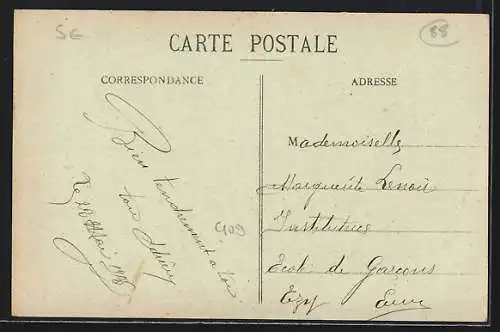 SE
88
CARTE POSTALE
CORRESPONDANCE
ADRESSE
Bien tendrement à toi
ton
Le 18 Mai 1908
909
Mademoiselle
Marguerite Lenoir
Institutrice
Ecole de Garçons
Ezy Eure